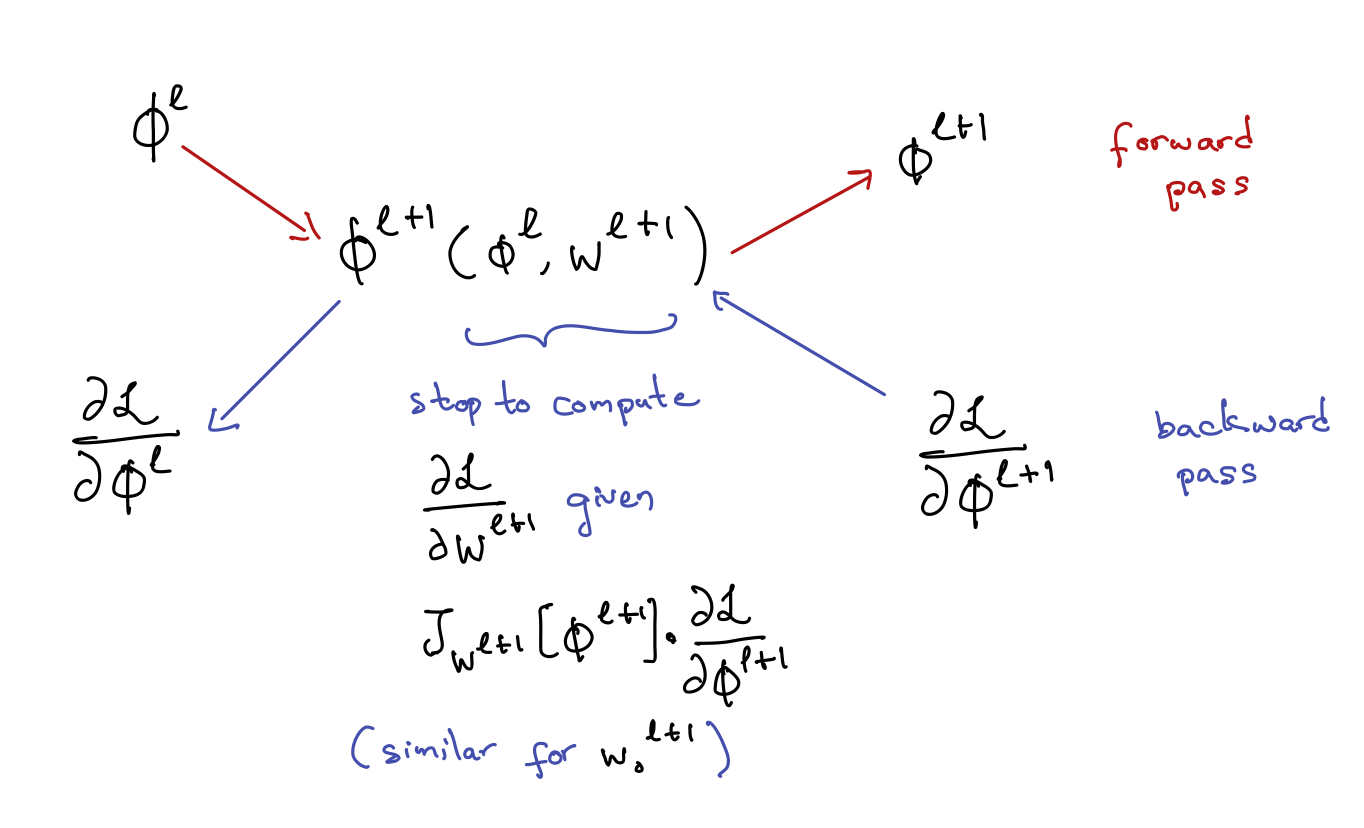 ϕ^ℓ
ϕ^{ℓ+1}
forward
pass
ϕ^{ℓ+1}(ϕ^ℓ, w^{ℓ+1})
∂ℒ/∂ϕ^ℓ
stop to compute
∂ℒ/∂w^{ℓ+1} given
J_{w^{ℓ+1}}[ϕ^{ℓ+1}] · ∂ℒ/∂ϕ^{ℓ+1}
(similar for w₀^{ℓ+1})
∂ℒ/∂ϕ^{ℓ+1}
backward
pass